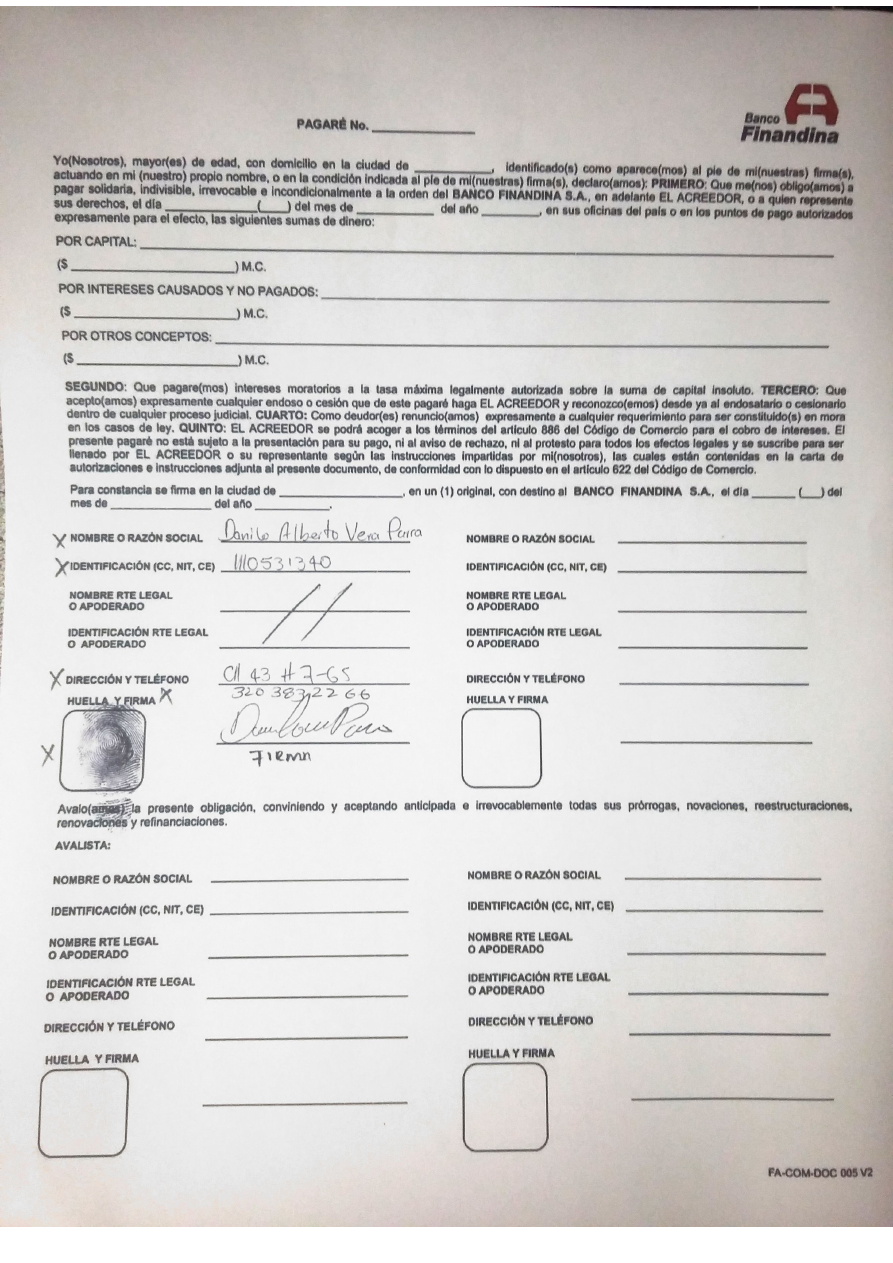 Banco
Finandina
PAGARÉ No. ____________
Yo(Nosotros), mayor(es) de edad, con domicilio en la ciudad de ____________, identificado(s) como aparece(mos) al pie de mi(nuestras) firma(s),
actuando en mi (nuestro) propio nombre, o en la condición indicada al pie de mi(nuestras) firma(s), declaro(amos): PRIMERO: Que me(nos) obligo(amos) a
pagar solidaria, indivisible, irrevocable e incondicionalmente a la orden del BANCO FINANDINA S.A., en adelante EL ACREEDOR, o a quien represente
sus derechos, el día ____________(____) del mes de __________ del año ________, en sus oficinas del país o en los puntos de pago autorizados
expresamente para el efecto, las siguientes sumas de dinero:
POR CAPITAL: ____________
($ ____________) M.C.
POR INTERESES CAUSADOS Y NO PAGADOS: ____________
($ ____________) M.C.
POR OTROS CONCEPTOS: ____________
($ ____________) M.C.
SEGUNDO: Que pagare(mos) intereses moratorios a la tasa máxima legalmente autorizada sobre la suma de capital insoluto. TERCERO: Que
acepto(amos) expresamente cualquier endoso o cesión que de este pagaré haga EL ACREEDOR y reconozco(emos) desde ya al endosatario o cesionario
dentro de cualquier proceso judicial. CUARTO: Como deudor(es) renuncio(amos) expresamente a cualquier requerimiento para ser constituido(s) en mora
en los casos de ley. QUINTO: EL ACREEDOR se podrá acoger a los términos del artículo 886 del Código de Comercio para el cobro de intereses. El
presente pagaré no está sujeto a la presentación para su pago, ni al aviso de rechazo, ni al protesto para todos los efectos legales y se suscribe para ser
llenado por EL ACREEDOR o su representante según las instrucciones impartidas por mi(nosotros), las cuales están contenidas en la carta de
autorizaciones e instrucciones adjunta al presente documento, de conformidad con lo dispuesto en el artículo 622 del Código de Comercio.
Para constancia se firma en la ciudad de ____________, en un (1) original, con destino al BANCO FINANDINA S.A., el día ______ (___) del
mes de ____________ del año ____________.
X NOMBRE O RAZÓN SOCIAL Danilo Alberto Vera Parra NOMBRE O RAZÓN SOCIAL
X IDENTIFICACIÓN (CC, NIT, CE) 1110531340 IDENTIFICACIÓN (CC, NIT, CE)
NOMBRE RTE LEGAL NOMBRE RTE LEGAL
O APODERADO O APODERADO
IDENTIFICACIÓN RTE LEGAL IDENTIFICACIÓN RTE LEGAL
O APODERADO O APODERADO
X DIRECCIÓN Y TELÉFONO Cll 43 # 7-65 DIRECCIÓN Y TELÉFONO
320 383 22 66
HUELLA Y FIRMA X HUELLA Y FIRMA
X
FIRMA
Avalo(amos) la presente obligación, conviniendo y aceptando anticipada e irrevocablemente todas sus prórrogas, novaciones, reestructuraciones,
renovaciones y refinanciaciones.
AVALISTA:
NOMBRE O RAZÓN SOCIAL NOMBRE O RAZÓN SOCIAL
IDENTIFICACIÓN (CC, NIT, CE) IDENTIFICACIÓN (CC, NIT, CE)
NOMBRE RTE LEGAL NOMBRE RTE LEGAL
O APODERADO O APODERADO
IDENTIFICACIÓN RTE LEGAL IDENTIFICACIÓN RTE LEGAL
O APODERADO O APODERADO
DIRECCIÓN Y TELÉFONO DIRECCIÓN Y TELÉFONO
HUELLA Y FIRMA HUELLA Y FIRMA
FA-COM-DOC 005 V2